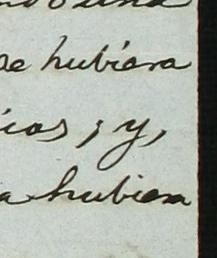 una
se hubiera
icas, y,
a hubiera